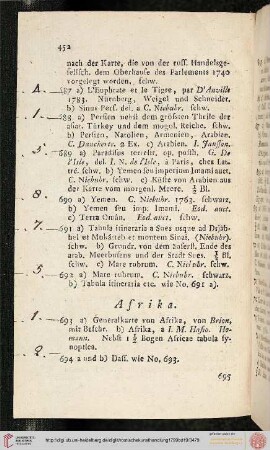 452
nach der Karte, die von der russ. Handelsge-
sellsch. dem Oberhause des Parlements 1740
vorgelegt worden, schw.
687 a) L'Euphrate et le Tigre, par D'Anville
1783. Nürnberg, Weigel und Schneider.
b) Sinus Pers. del. a C. Niebuhr. schw.
688 a) Persien nebst dem größten Theile der
asiat. Türkey und dem mogol. Reiche. schw.
b) Persien, Natolien, Armenien, Arabien.
C. Danckerts. 2 Ex. c) Arabien. I. Janssen.
689 a) Paradisus terrestr. op. posth. G. De
l'Isle, del. I. N. de l'Isle, à Paris, chez Lat-
tré. schw. b) Yemen seu imperium Imami auct.
C. Niebuhr. schw. c) Küste von Arabien aus
der Karte vom morgenl. Meere. ½ Bl.
690 a) Yemen. C. Niebuhr. 1763. schwarz.
b) Yemen seu imp. Imami. Eod. auct.
c) Terra Omán. Eod. auct. schw.
691 a) Tabula itineraria a Sues usque ad Dsjäb-
bel et Mokátteb et montem Sinai. (Niebuhr).
schw. b) Grundr. von dem äusserst. Ende des
arab. Meerbusens und der Stadt Sues. ½ Bl.
schw. c) Mare rubrum. C. Niebuhr. schw.
692 a) Mare rubrum. C. Niebuhr. schwarz.
b) Tabula itineraria etc. wie No. 691 a).
Afrika.
693 a) Generalkarte von Afrika, von Brion,
mit Beschr. b) Afrika, a I. M. Hasio. Ho-
mann. Nebst 1½ Bogen Africae tabula sy-
noptica.
694 a und b) Dass. wie No. 693.
695